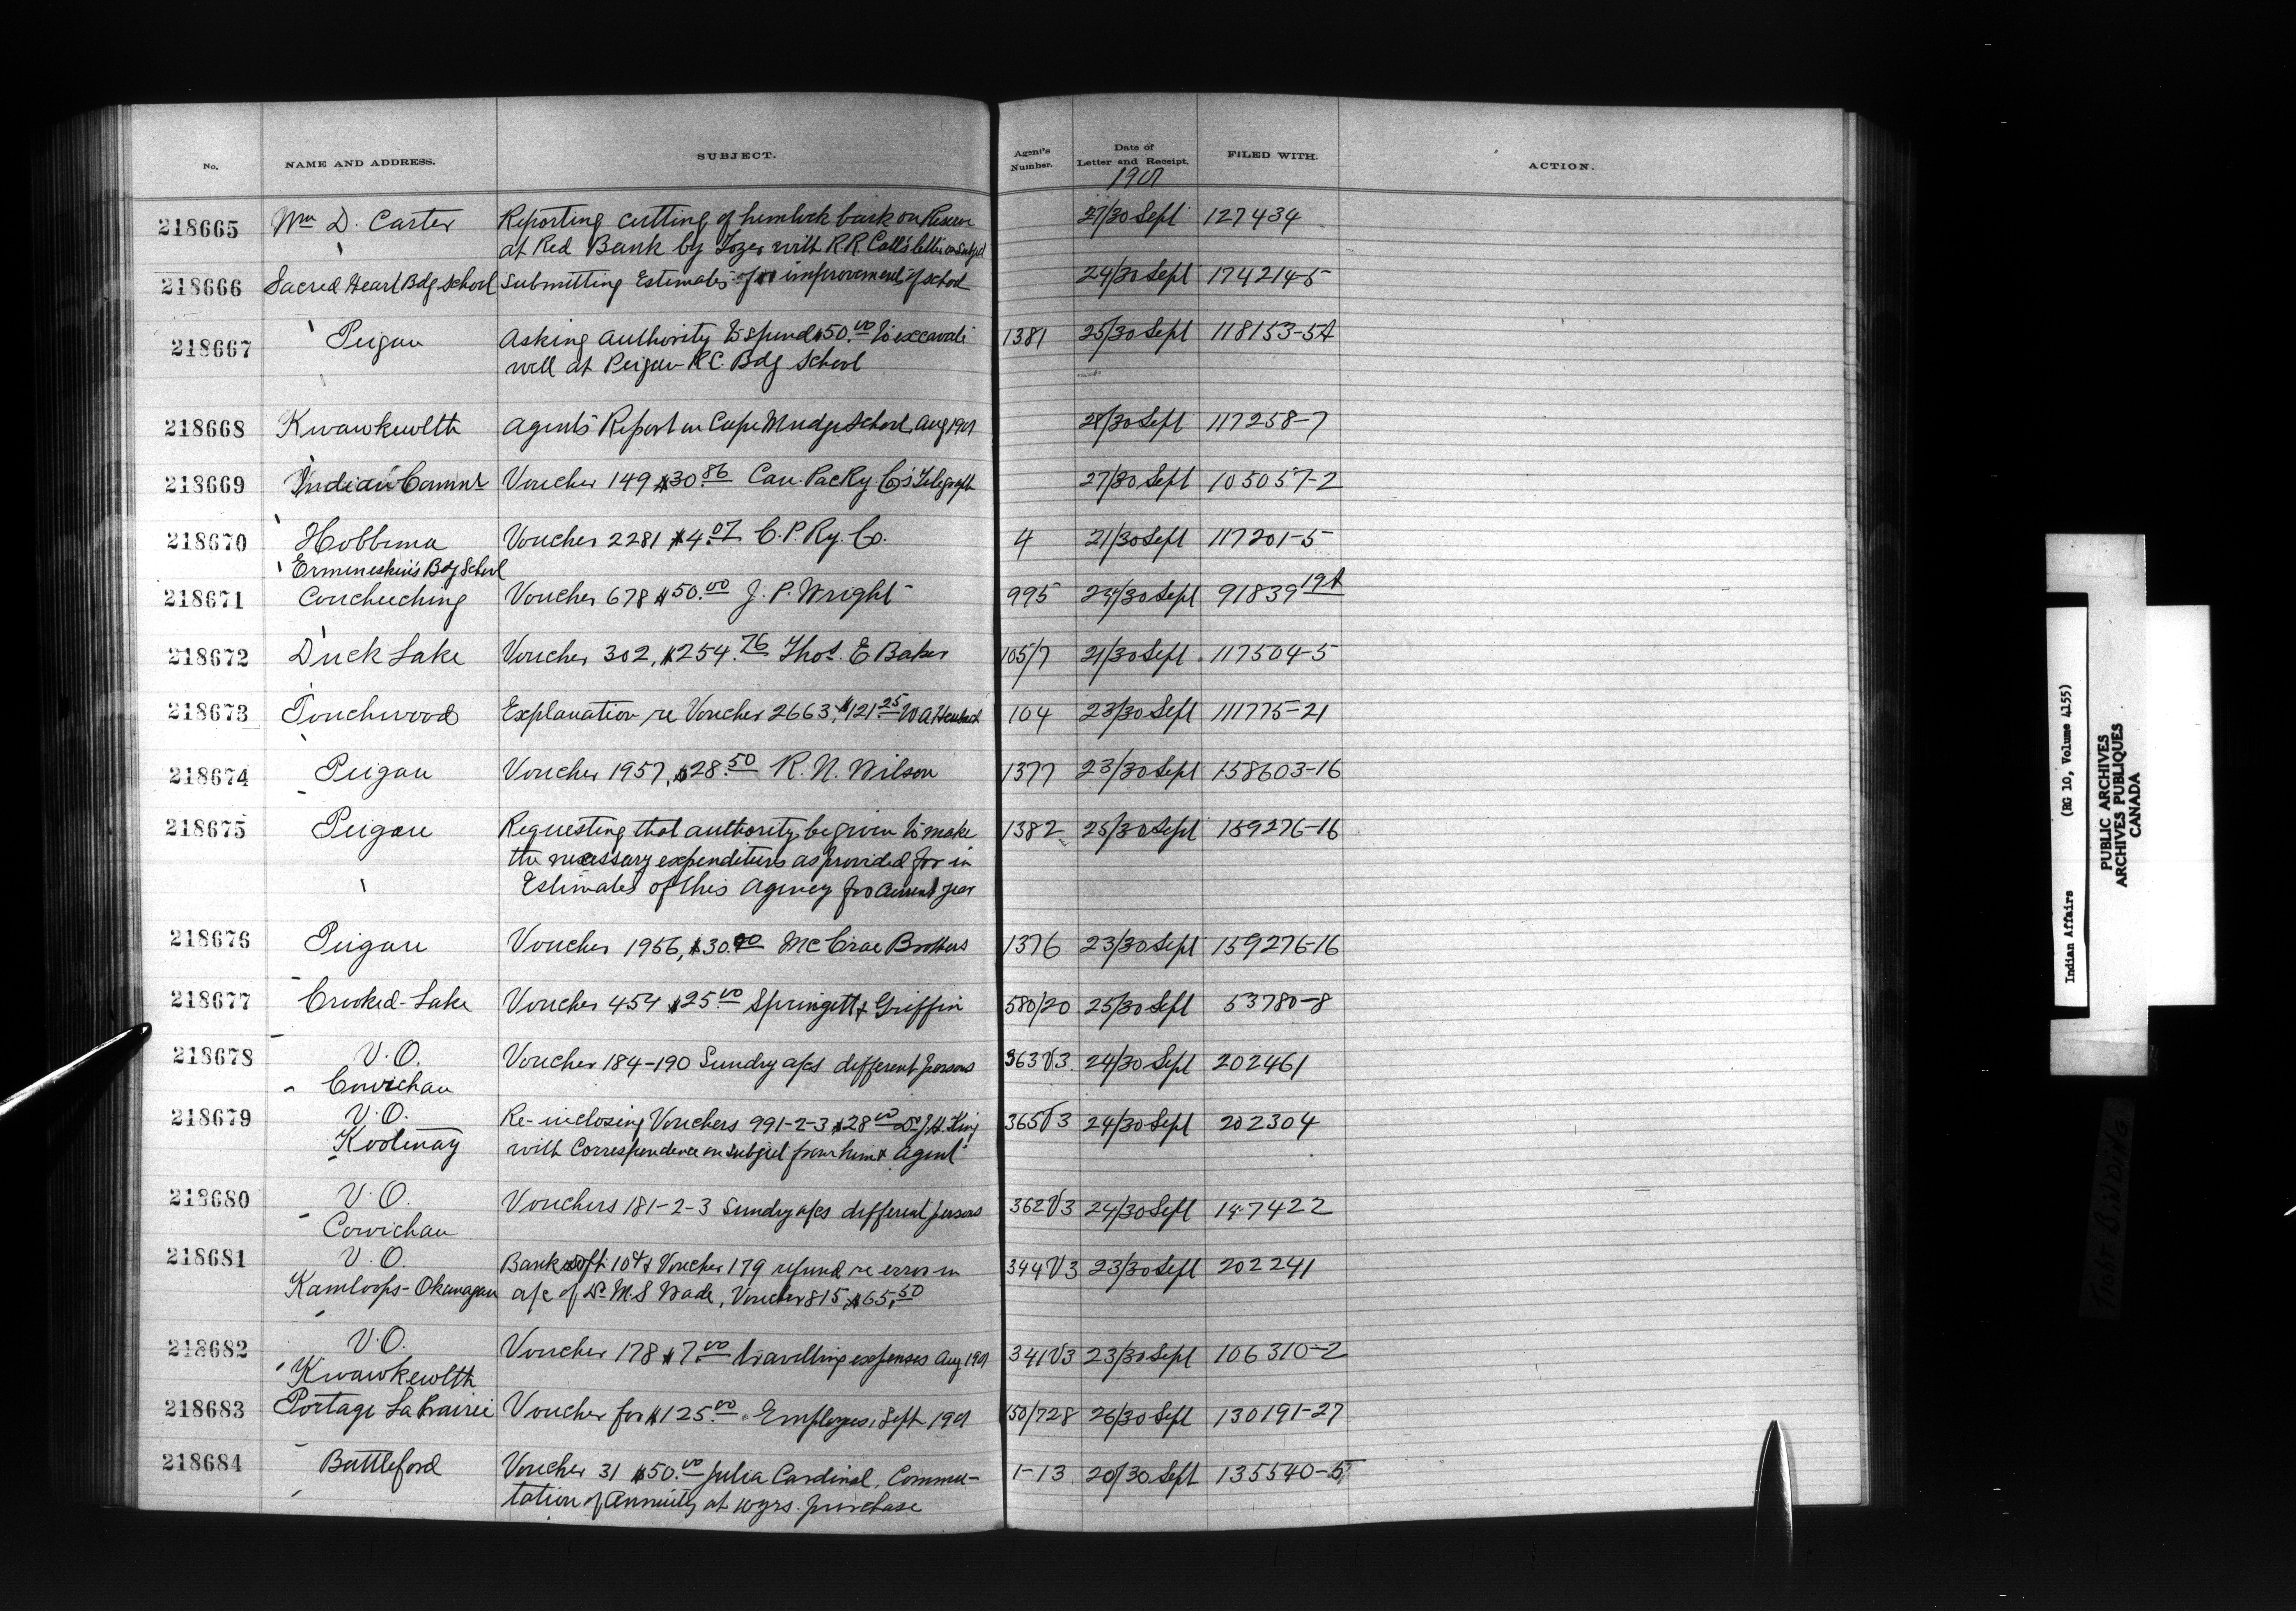 No. NAME AND ADDRESS. SUBJECT. Agent's Number. Date of Letter and Receipt. FILED WITH. ACTION.
1901
218665 Wm D. Carter Reporting cutting of hemlock bark on Reserve 27/30 Sept 127434
at Red Bank by Tozer with R.R. Call's letter on subject
218666 Sacred Heart Bdg School Submitting Estimates for improvements of school 24/30 Sept 174214-5
218667 Peigan Asking authority to spend $50.00 to excavate 1381 25/30 Sept 118153-5A
well at Peigan R.C. Bdg School
218668 Kwawkewlth Agent's Report on Cape Mudge School, Aug 1901 28/30 Sept 117258-7
218669 Indian Commr Voucher 149 $30.86 Can. Pac Ry. Co's Telegraph 27/30 Sept 105057-2
218670 Hobbema Voucher 2281 $4.07 C.P. Ry. Co. 4 21/30 Sept 117201-5
Ermineskin's Bdg School
218671 Coucheeching Voucher 678 $50.00 J. P. Wright 995 /30 Sept 91839 19A
218672 Duck Lake Voucher 302, $254.76 Thos. E Baker 105/7 21/30 Sept 117504-5
218673 Touchwood Explanation re Voucher 2663, $121.25 W A 104 23/30 Sept 111775-21
218674 Peigan Voucher 1957, $28.50 R. N. Wilson 1377 23/30 Sept 158603-16
218675 Peigan Requesting that authority be given to make 1382 25/30 Sept 159276-16
the necessary expenditures as provided for in
Estimates of this Agency for current year
218676 Peigan Voucher 1956, $30.00 McCrae Brothers 1376 23/30 Sept 159276-16
218677 Crooked-Lake Voucher 454 $25.00 Springett & Griffin 580/20 25/30 Sept 53780-8
218678 V.O. Voucher 184-190 Sundry a/cs different persons 363V3 24/30 Sept 202461
Cowichan
218679 V.O. Re-inclosing Vouchers 991-2-3 $28.00 Dr J.H. King 365V3 24/30 Sept 202304
Kootenay with Correspondence on subject from him & Agent
218680 V.O. Vouchers 181-2-3 Sundry a/cs different persons 362V3 24/30 Sept 147422
Cowichan
218681 V.O. Bank dft 104 & Voucher 179 refund re error in 344V3 23/30 Sept 202241
Kamloops-Okanagan a/c of Dr M.S Wade, Voucher 815, $65.50
218682 V.O. Voucher 178 $7.00 travelling expenses Aug 1901 341V3 23/30 Sept 106310-2
Kwawkewlth
218683 Portage La Prairie Voucher for $125.00 Employees, Sept. 1901 150/728 26/30 Sept 130191-27
218684 Battleford Voucher 31 $50.00 Julia Cardinal, Commu- 1-13 20/30 Sept 135540-5
tation of Annuity at 10 yrs. purchase
Indian Affairs (RG 10, Volume 4155)
PUBLIC ARCHIVES
ARCHIVES PUBLIQUES
CANADA
TIGHT BINDING